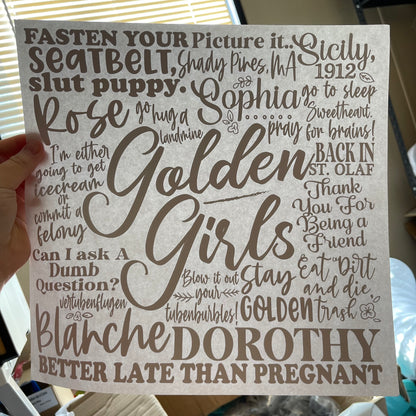 FASTEN YOUR
SEATBELT,
slut puppy.
Picture it..
Sicily,
1912
Shady Pines, MA
Rose
go hug a
landmine
Sophia
......
go to sleep
Sweetheart.
pray
for brains!
I'm either
going to get
icecream
or
commit a
felony
Golden
Girls
BACK IN
ST. OLAF
Thank
You For
Being a
Friend
Can I ask A
Dumb
Question?
vertubenflugen
Blow it out
your
tubenburbles!
Stay
GOLDEN
Eat "Dirt
and die,
trash
Blanche
DOROTHY
BETTER LATE THAN PREGNANT